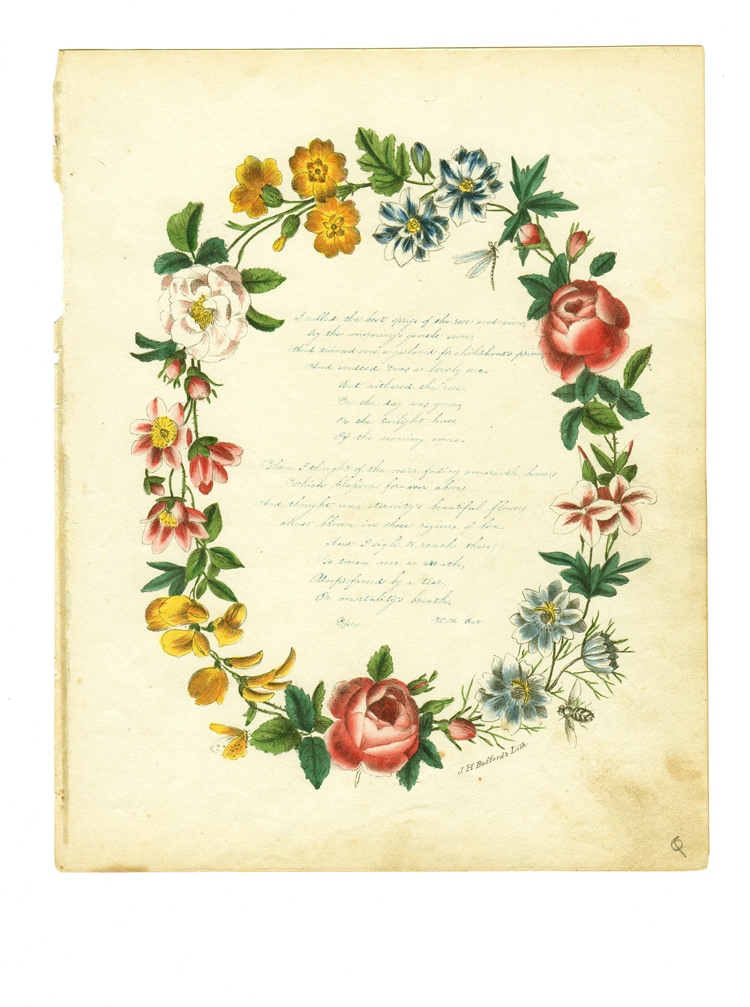 I culled the best sprigs of the rose and vine,
By the morning's gentle sun,
And twined me a garland for childhood's
And indeed 'twas a lovely one.
But withered the rose,
Ere the day was gone;
Or the twilight hues,
Of the evening come.
Then I thought of the ne'er fading amaranth bowers,
Which blossom for ever above,
And thought were eternity's beautiful flowers
Must bloom in these regions of love.
And I sigh to reach there;
To twine me a wreath,
Unprofaned by a tear,
Or mortality's breath.
J H Bufford's Lith